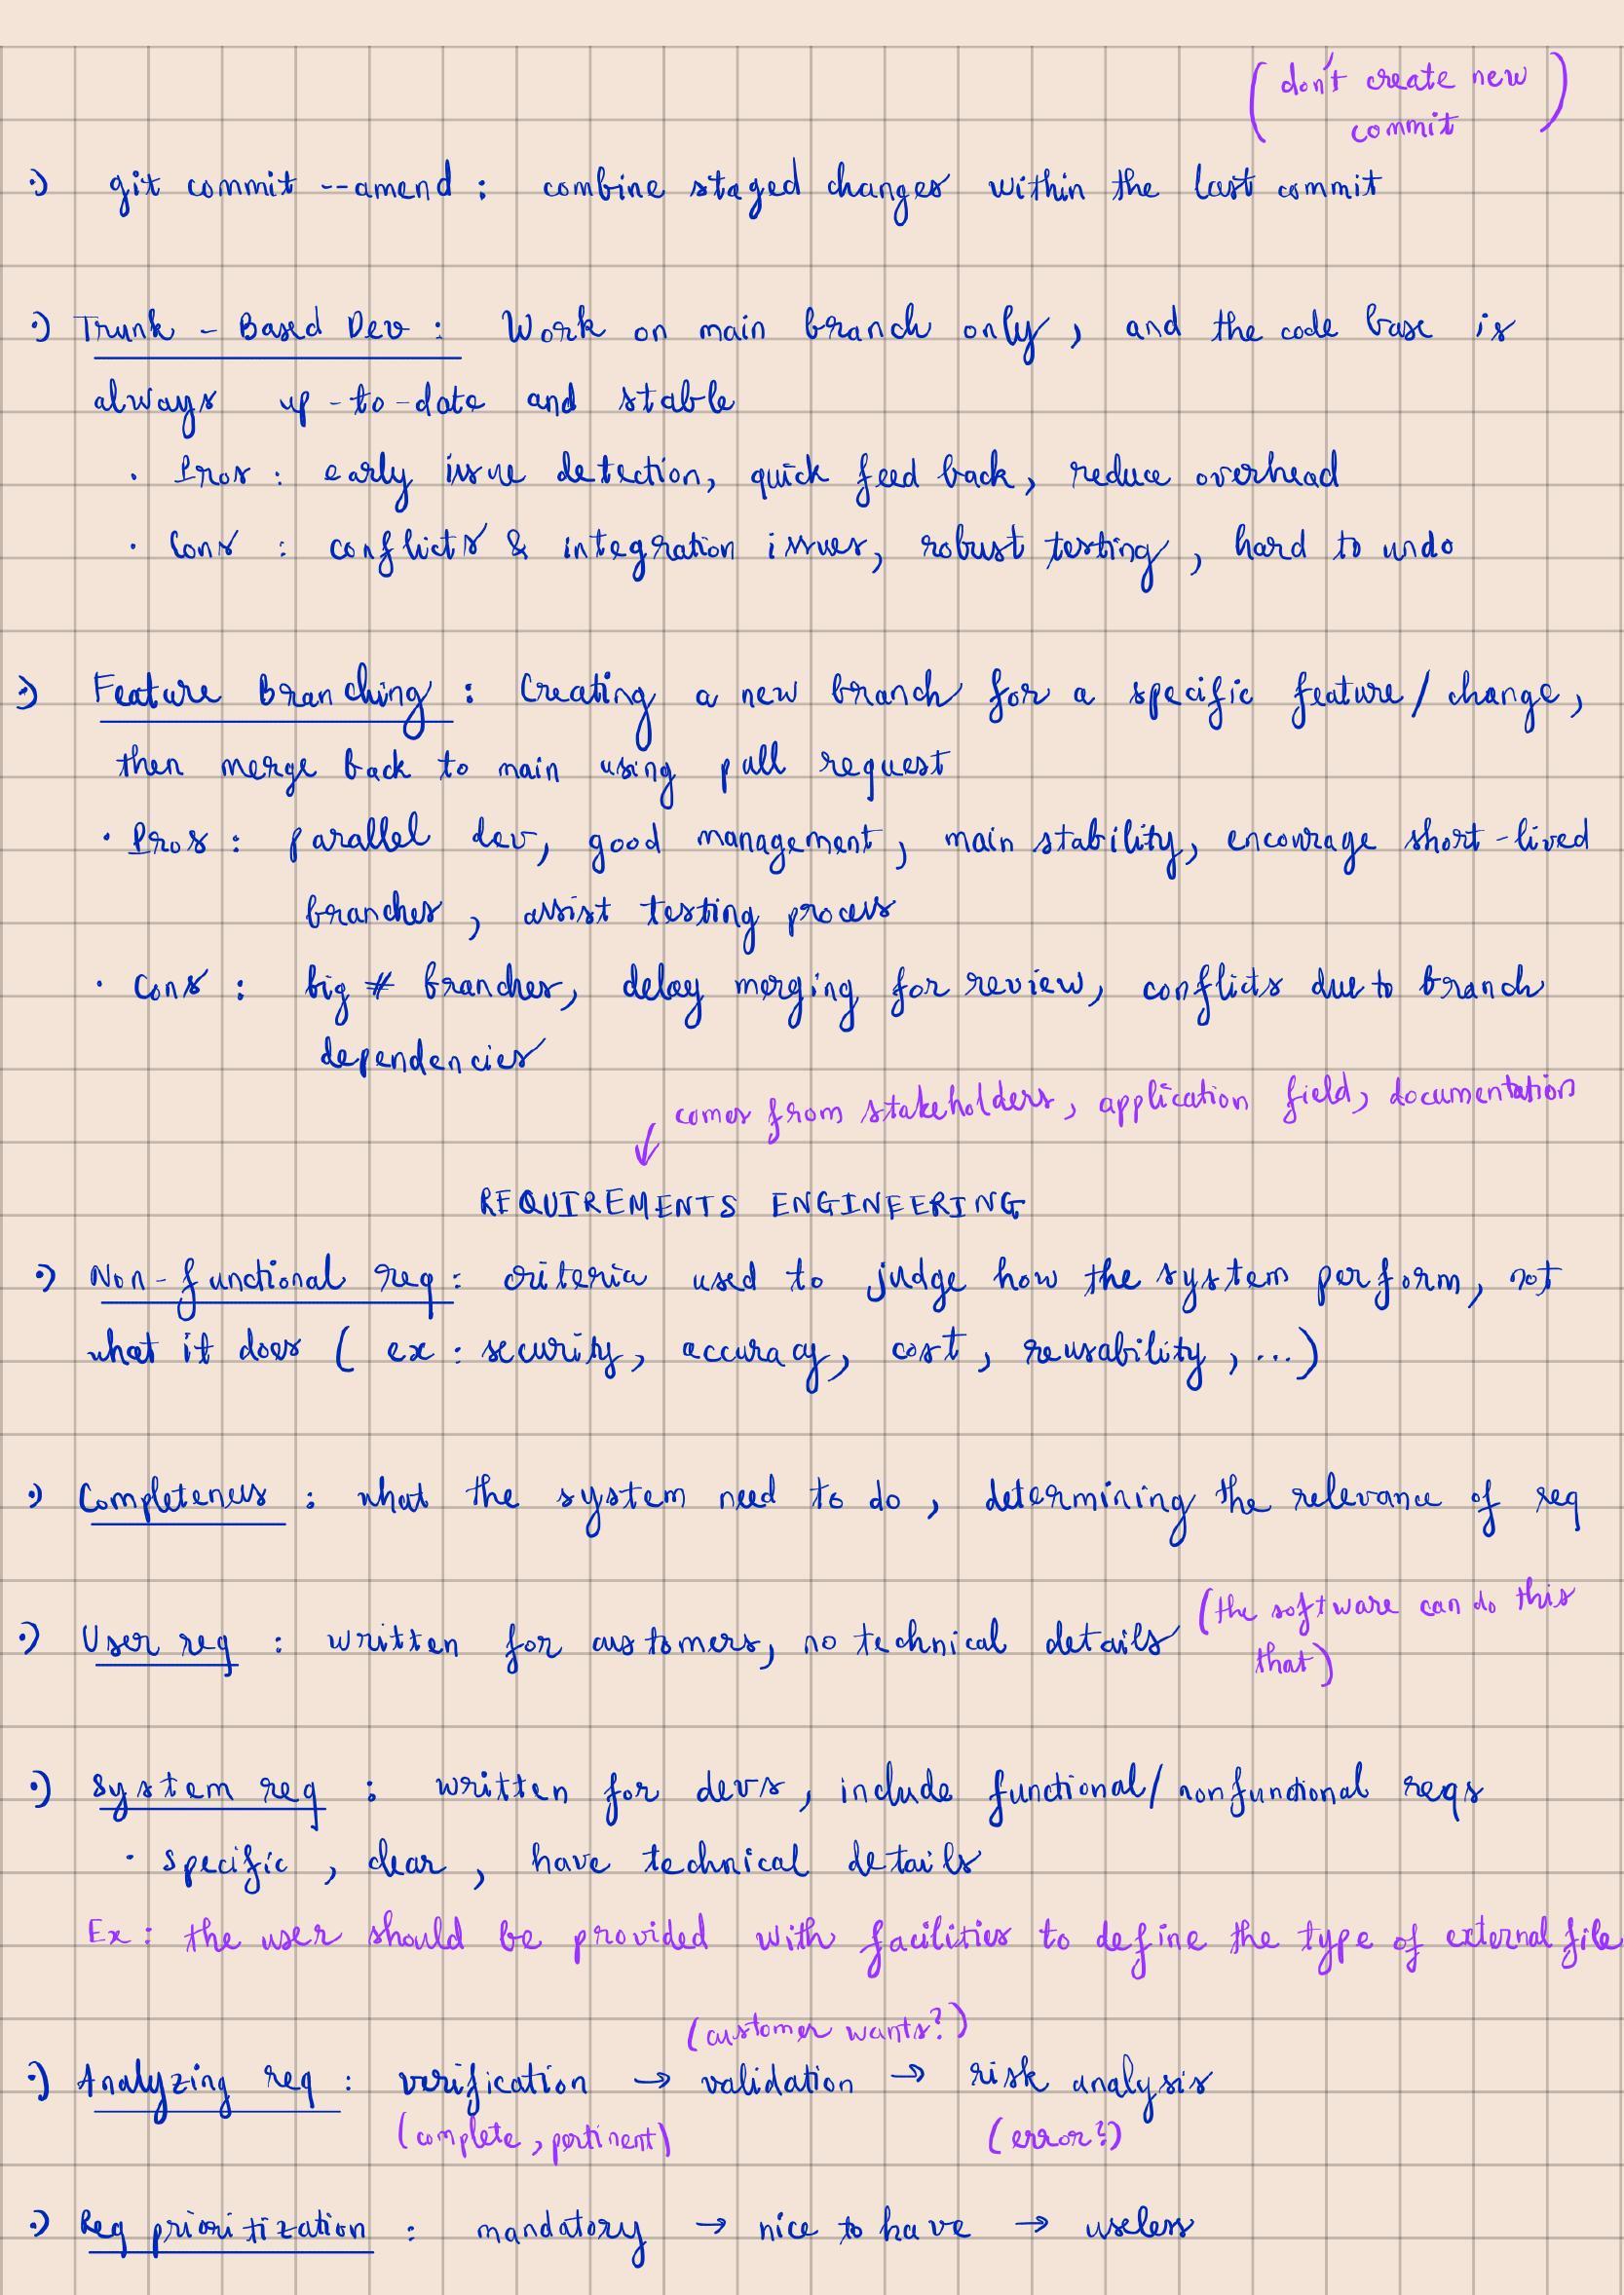 (don't create new
commit)
·) git commit --amend : combine staged changes within the last commit
·) Trunk - Based Dev : Work on main branch only, and the code base is
always up-to-date and stable
· Pros : early issue detection, quick feed back, reduce overhead
· Cons : conflicts & integration issues, robust testing, hard to undo
·) Feature Branching : Creating a new branch for a specific feature/change,
then merge back to main using pull request
· Pros : parallel dev, good management, main stability, encourage short-lived
branches, assist testing process
· Cons : big # branches, delay merging for review, conflicts due to branch
dependencies
↙ comes from stakeholders, application field, documentation
REQUIREMENTS ENGINEERING
·) Non-functional req : criteria used to judge how the system perform, not
what it does ( ex : security, accuracy, cost, reusability, ...)
·) Completeness : what the system need to do, determining the relevance of req
·) User req : written for customers, no technical details (the software can do this
that)
·) System req : written for devs, include functional/nonfunctional reqs
· specific, clear, have technical details
Ex : the user should be provided with facilities to define the type of external file
(customer wants?)
·) Analyzing req : verification → validation → risk analysis
(complete, pertinent) (error?)
·) Req prioritization : mandatory → nice to have → useless